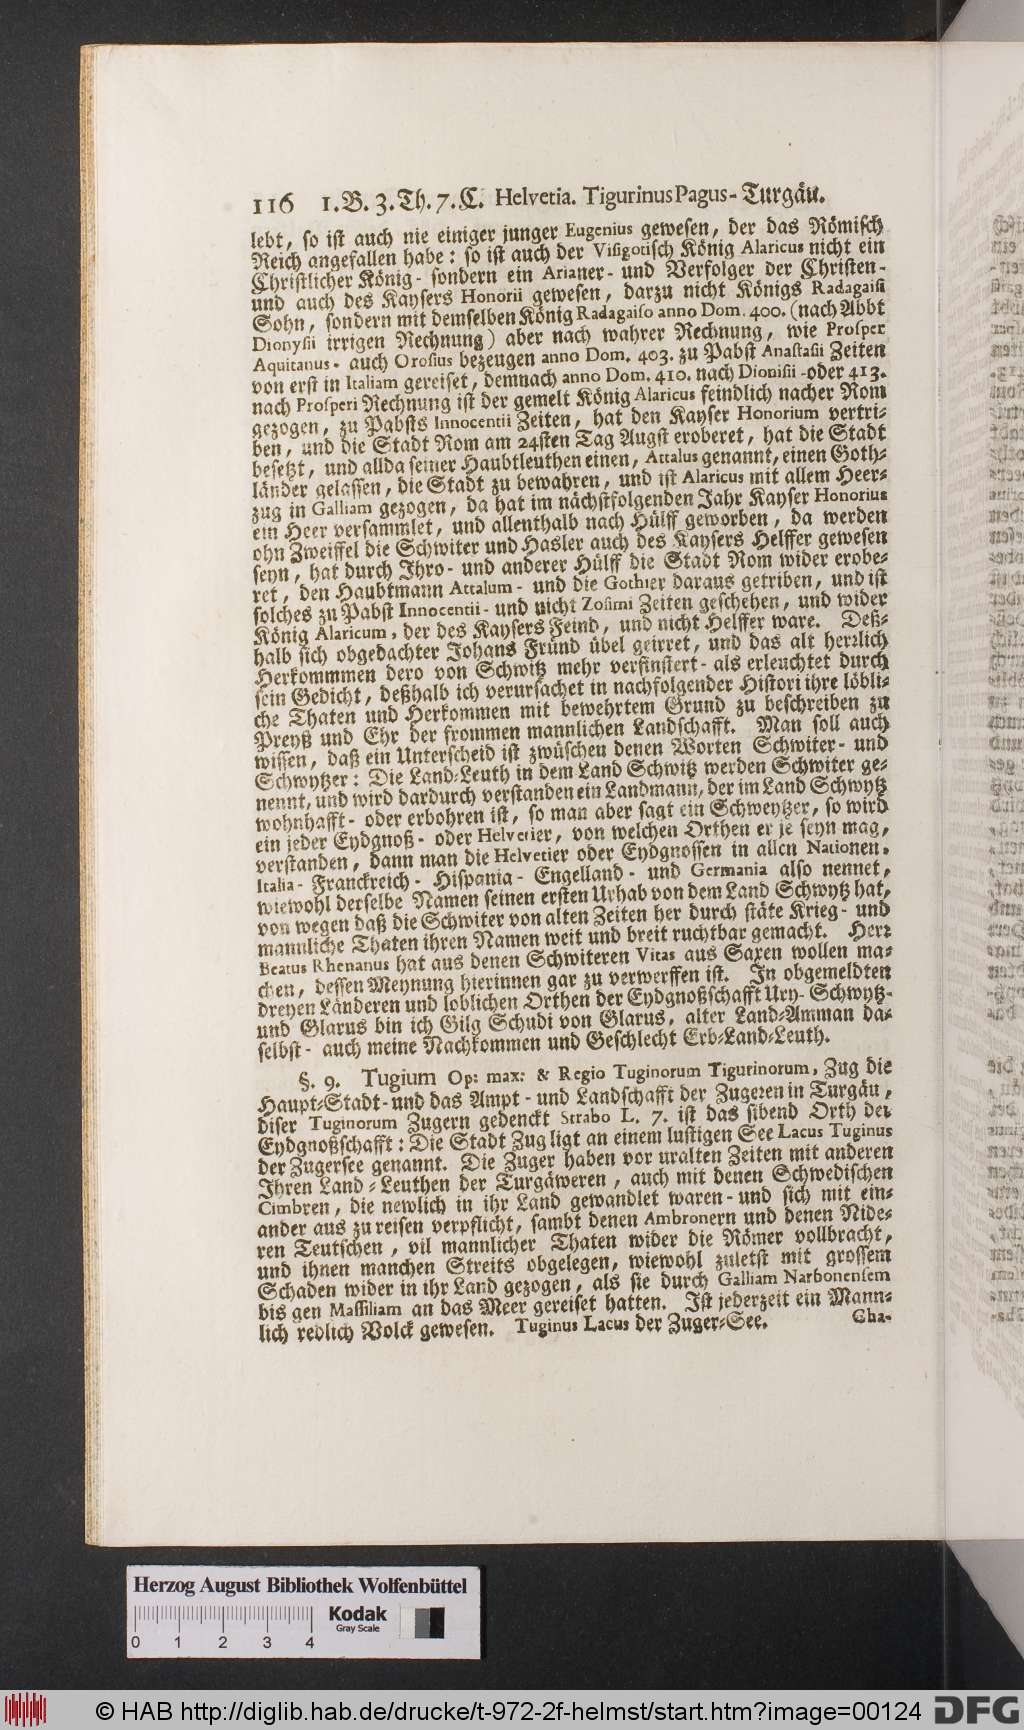 116 1. B. 3. Th. 7. C. Helvetia. Tigurinus Pagus- Turgäu.
lebt, so ist auch nie einiger junger Eugenius gewesen, der das Römisch
Reich angefallen habe: so ist auch der Visigotisch König Alaricus nicht ein
Christlicher König- sondern ein Arianer- und Verfolger der Christen-
und auch des Kaysers Honorii gewesen, darzu nicht Königs Radagaisi
Sohn, sondern mit demselben König Radagaiso anno Dom. 400. (nach Abbt
Dionysii irrigen Rechnung) aber nach wahrer Rechnung, wie Prosper
Aquitanus- auch Orosius bezeugen anno Dom. 403. zu Pabst Anastasii Zeiten
von erst in Italiam gereiset, demnach anno Dom. 410. nach Dionisii- oder 413.
nach Prosperi Rechnung ist der gemelt König Alaricus feindlich nacher Rom
gezogen, zu Pabsts Innocentii Zeiten, hat den Kayser Honorium vertri-
ben, und die Stadt Rom am 24sten Tag Augst eroberet, hat die Stadt
besetzt, und allda seiner Haubtleuthen einen, Attalus genannt, einen Goth-
länder gelassen, die Stadt zu bewahren, und ist Alaricus mit allem Heer-
zug in Galliam gezogen, da hat im nächstfolgenden Jahr Kayser Honorius
ein Heer versammlet, und allenthalb nach Hülff geworben, da werden
ohn Zweiffel die Schwiter und Hasler auch des Kaysers Helffer gewesen
seyn, hat durch Ihro- und anderer Hülff die Stadt Rom wider erobe-
ret, den Haubtmann Attalum- und die Gothier daraus getriben, und ist
solches zu Pabst Innocentii- und nicht Zosimi Zeiten geschehen, und wider
König Alaricum, der des Kaysers Feind, und nicht Helffer ware. Deß-
halb sich obgedachter Johans Fründ übel geirret, und das alt herzlich
Herkommmen dero von Schwitz mehr verfinstert- als erleuchtet durch
sein Gedicht, deßhalb ich verursachet in nachfolgender Histori ihre löbli-
che Thaten und Herkommen mit bewehrtem Grund zu beschreiben zu
Preyß und Ehr der frommen mannlichen Landschafft. Man soll auch
wissen, daß ein Unterscheid ist zwüschen denen Worten Schwiter- und
Schwytzer: Die Land-Leuth in dem Land Schwitz werden Schwiter ge-
nennt, und wird dardurch verstanden ein Landmann, der im Land Schwytz
wohnhafft- oder erbohren ist, so man aber sagt ein Schweytzer, so wird
ein jeder Eydgnoß- oder Helvetier, von welchen Orthen er je seyn mag,
verstanden, dann man die Helvetier oder Eydgnossen in allen Nationen,
Italia- Franckreich- Hispania- Engelland- und Germania also nennet,
wiewohl derselbe Namen seinen ersten Urhab von dem Land Schwytz hat,
von wegen daß die Schwiter von alten Zeiten her durch stäte Krieg- und
mannliche Thaten ihren Namen weit und breit ruchtbar gemacht. Herr
Beatus Rhenanus hat aus denen Schwiteren Vitas aus Saxen wollen ma-
chen, dessen Meynung hierinnen gar zu verwerffen ist. In obgemeldten
dreyen Länderen und loblichen Orthen der Eydgnoßschafft Ury- Schwytz-
und Glarus bin ich Gilg Schudi von Glarus, alter Land-Amman da-
selbst- auch meine Nachkommen und Geschlecht Erb-Land-Leuth.
§. 9. Tugium Op: max: & Regio Tuginorum Tigurinorum, Zug die
Haupt-Stadt- und das Ampt- und Landschafft der Zugeren in Turgäu,
diser Tuginorum Zugern gedenckt Strabo L. 7. ist das sibend Orth der
Eydgnoßschafft: Die Stadt Zug ligt an einem lustigen See Lacus Tuginus
der Zugersee genannt. Die Zuger haben vor uralten Zeiten mit anderen
Ihren Land-Leuthen der Turgäweren, auch mit denen Schwedischen
Cimbren, die newlich in ihr Land gewandlet waren- und sich mit ein-
ander aus zu reisen verpflicht, sambt denen Ambronern und denen Nide-
ren Teutschen, vil mannlicher Thaten wider die Römer vollbracht,
und ihnen manchen Streits obgelegen, wiewohl zuletst mit grossem
Schaden wider in ihr Land gezogen, als sie durch Galliam Narbonensem
bis gen Massiliam an das Meer gereiset hatten. Ist jederzeit ein Mann-
lich redlich Volck gewesen. Tuginus Lacus der Zuger-See. Cha-
Herzog August Bibliothek Wolfenbüttel
0 1 2 3 4 Kodak Gray Scale
© HAB http://diglib.hab.de/drucke/t-972-2f-helmst/start.htm?image=00124 DFG